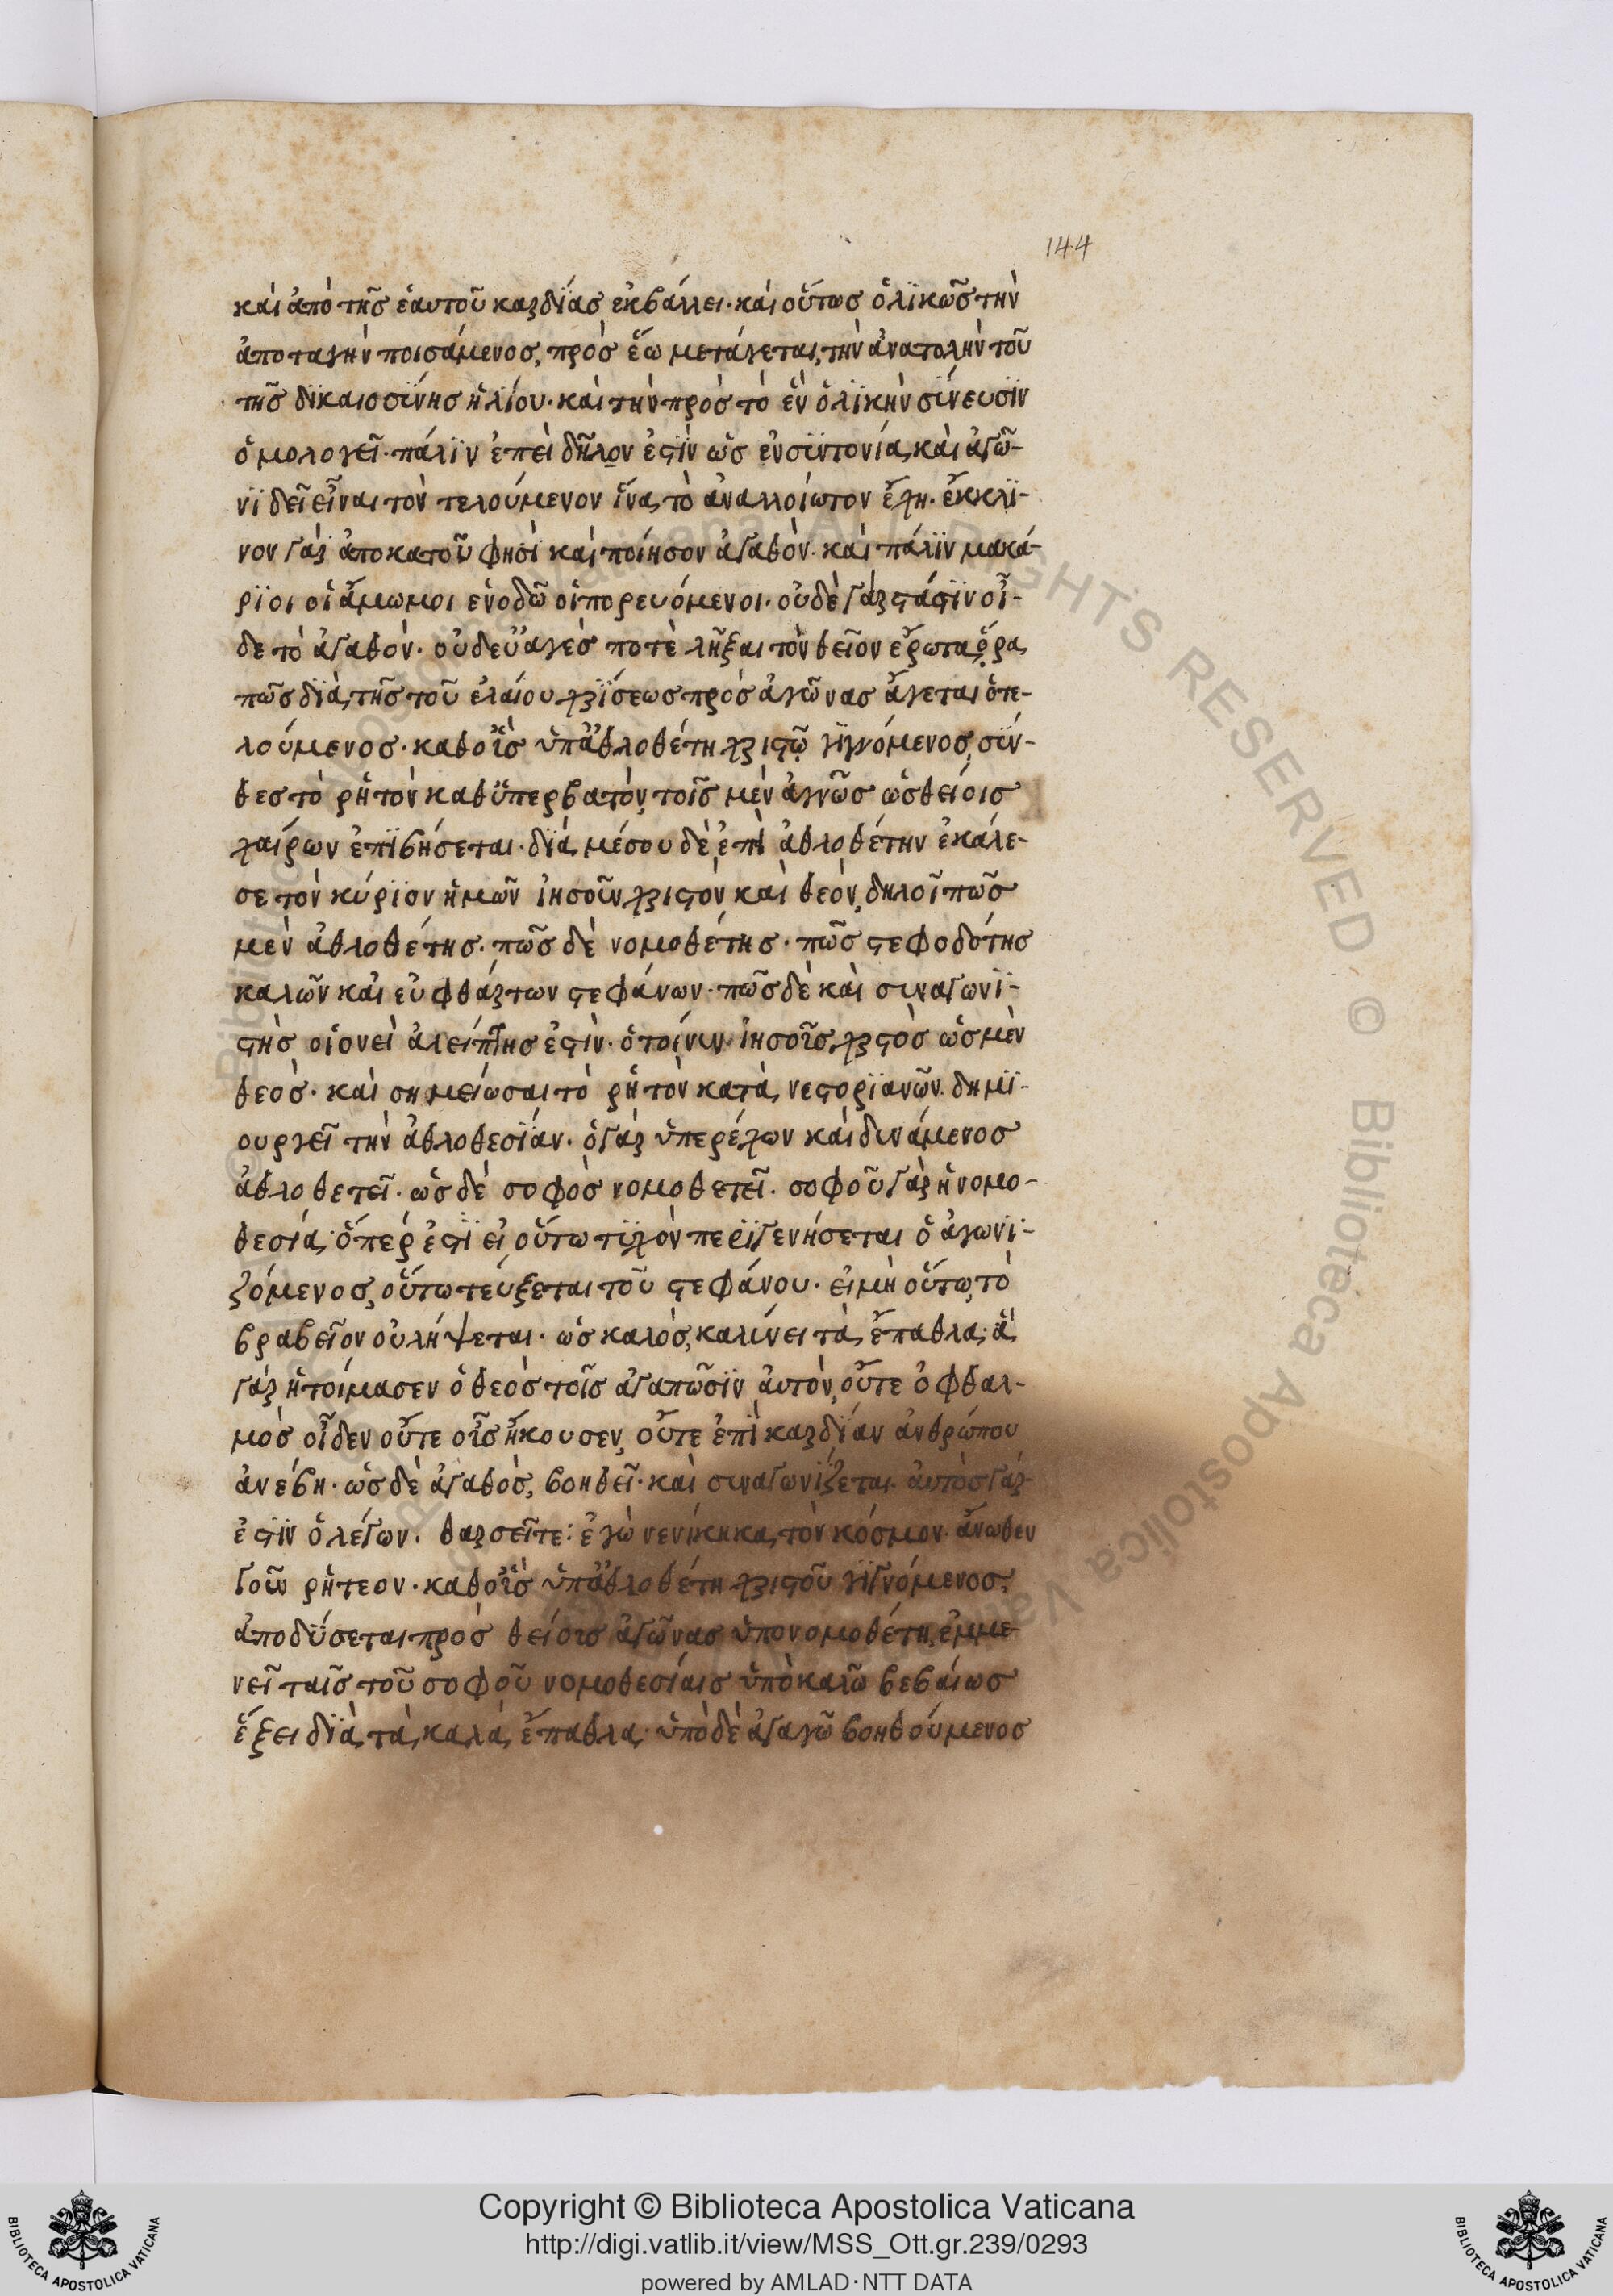 144
καὶ ἀπὸ τῆσ ἑαυτοῦ καρδΐασ ἐκβάλλει· καὶ οὕτωσ ὁλϊκῶσ τὴν
ἀποταγὴν ποισάμενοσ, πρὸσ ἕω μετάγεται, τὴν ἀνατολὴν τοῦ
τῆσ δϊκαιοσΐνησ ἡλίου· καὶ τὴν πρὸσ τὸ ἓν ὁλϊκὴν σΐνευσϊν
ὁμολογεῖ· πάλϊν ἐπεὶ δῆλον ἐστϊν ὡσ ἐν σϊντονία, καὶ ἀγῶ-
νϊ δεῖ εἶναι τὸν τελούμενον ἵνα τὸ ἀναλλοίωτον ἔχη· ἔκκλϊ-
νον γὰρ ἀπο κατοῦ φησὶ καὶ ποίησον ἀγαθὸν· καὶ πάλϊν μακά-
ρϊοι οἱ ἄμωμοι ἐν ὁδῶ οἱ πορευόμενοι· οὐδὲ γὰρ στάσϊν οἶ-
δε τὸ ἀγαθὸν· οὐδ εὐαγὲσ ποτὲ λῆξαι τὸν θεῖον ἔρωτα, ὅρα
πῶσ δϊὰ τῆσ τοῦ ἐλαίου χρΐσεωσ πρὸσ ἀγῶνασ ἄγεται ὁ τε-
λούμενοσ· καθ οἷσ ὑπ ἀθλοθέτη χριστῶ γϊγνόμενοσ, σΐν-
θεσ τὸ ρἡτὸν καθ ὕπερβατὸν, τοῖσ μὲν ἀγνῶσ ὡσ θείοισ
χαίρων ἐπϊβήσεται· δϊὰ μέσου δὲ ἐπὶ ἀθλοθέτην ἐκάλε-
σε τὸν κύρϊον ἡμῶν ἰησοῦν χριστὸν καὶ θεὸν, δηλοῖ πῶσ
μὲν ἀθλοθέτησ· πῶσ δὲ νομοθέτησ· πῶσ στεφοδότησ
καλῶν καὶ εὐφθάρτων στεφάνων· πῶσ δὲ καὶ συναγωνϊ-
στὴσ οἱονεὶ ἀλείπτησ ἐστὶν· ὁ τοίνυν ἰησοῦσ χρστὸσ ὡσ μὲν
θεὸσ· καὶ σημείωσαι τὸ ρἡτὸν κατὰ νεστορϊανῶν. δημϊ-
ουργεῖ τὴν ἀθλοθεσΐαν· ὁ γὰρ ὑπερέχων καὶ δυνάμενοσ
ἀθλοθετεῖ· ὡσ δὲ σοφὸσ νομοθετεῖ· σοφοῦ γὰρ ἡ νομο-
θεσία, ὅπέρ ἐστϊ εἰ οὕτω τϋχὸν περϊγενήσεται ὁ ἀγωνϊ-
ζόμενοσ, οὕτω τεύξεται τοῦ στεφάνου· εἰ μὴ οὕτω, τὸ
βραβεῖον οὐ λήψεται· ὡσ καλὸσ, καλύνει τὰ ἔπαθλα· ἃ
γὰρ ἡτοίμασεν ὁ θεὸσ τοῖσ ἀγαπῶσϊν ἀυτὸν, οὔτε ὀφθαλ-
μὸσ οἶδεν οὔτε οἶσ ἤκουσεν, οὔτε ἐπὶ καρδΐαν ἀνθρώπου
ἀνέβη· ὡσ δὲ ἀγαθὸσ, βοηθεῖ· καὶ συναγωνίζεται· ἀυτὸσ γάρ
ἐστϊν ὁ λέγων· θαρσεῖτε: ἐγὼ νενίκηκα, τὸν κόσμον· ἄνωθεν
γοῦν ρἡτεον· καθ οἷσ ὑπ ἀθλοθέτη χριστοῦ γϊγνόμενοσ,
ἀποδΰσεται πρὸσ θείοισ ἀγῶνασ ὑπο νομοθέτη, ἐμμε-
νεῖ ταῖσ τοῦ σοφοῦ νομοθεσίαισ ὑπὸ καλῶ βεβαίωσ
ἕξει δϊὰ τὰ καλὰ ἔπαθλα· ὑπὸ δὲ ἀγαγῶ βοηθούμενοσ
Copyright © Biblioteca Apostolica Vaticana
http://digi.vatlib.it/view/MSS_Ott.gr.239/0293
powered by AMLAD·NTT DATA